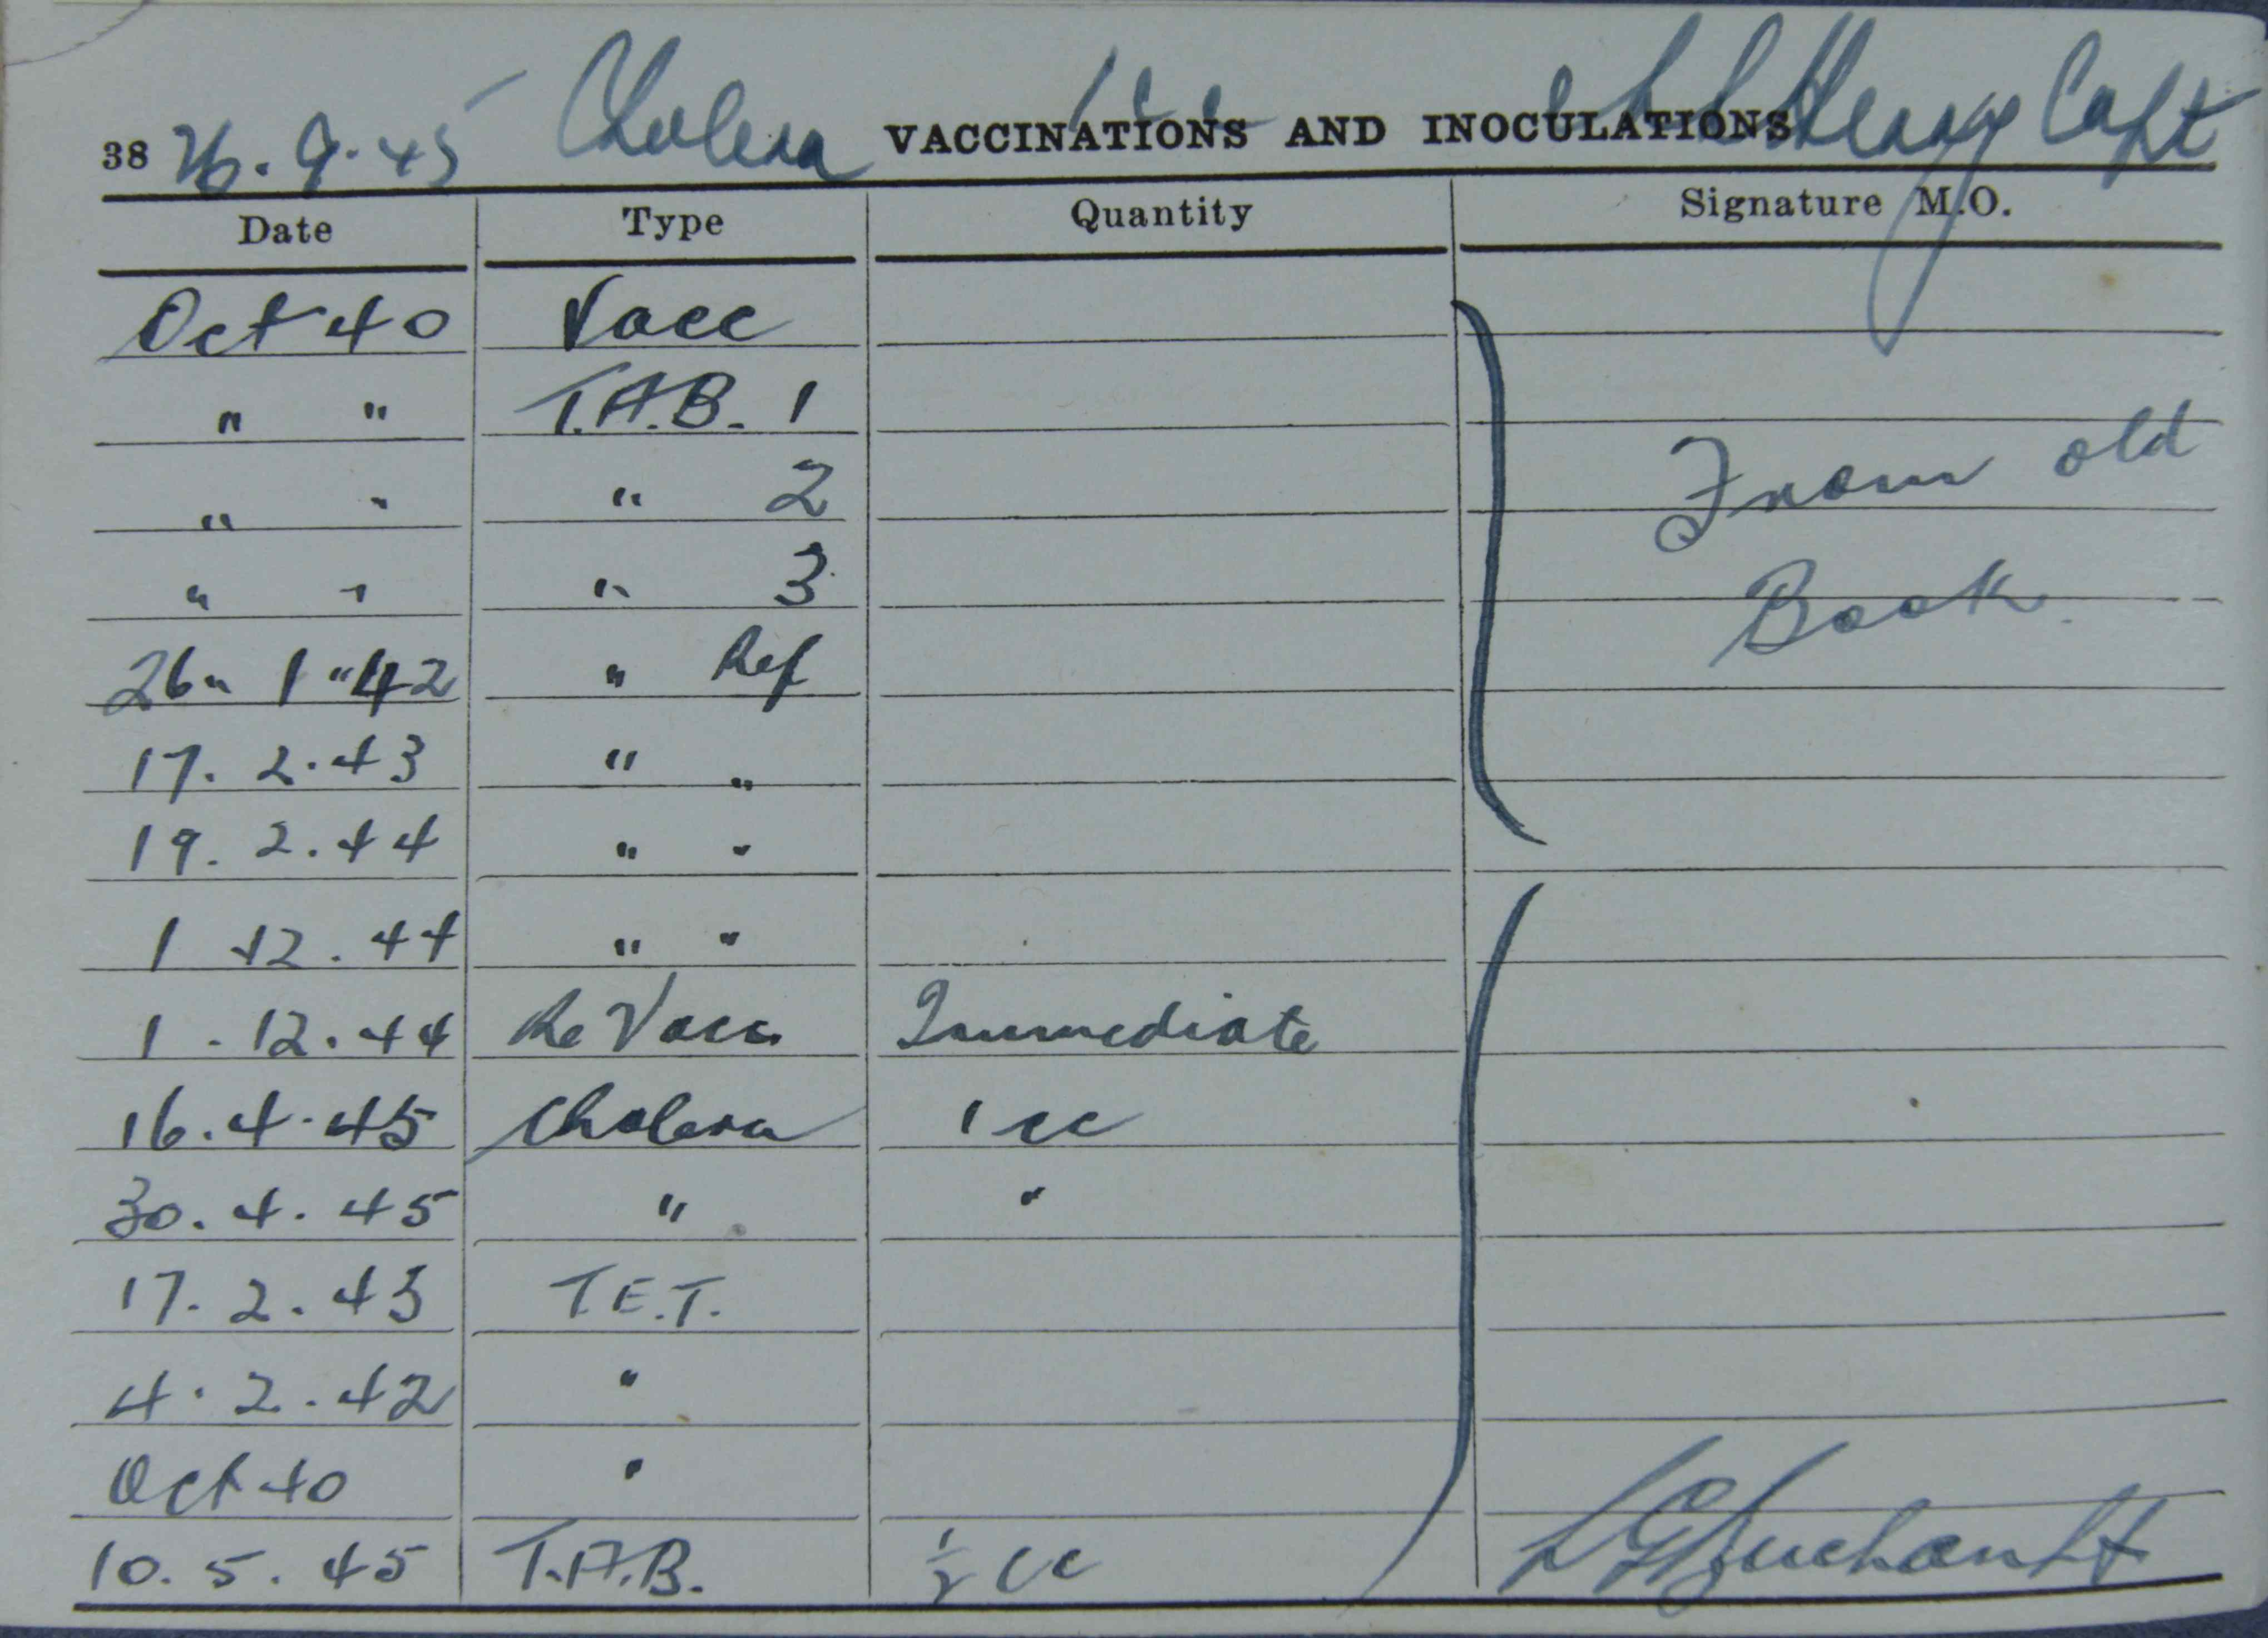 38 26.9.45 Cholera 1cc Capt
VACCINATIONS AND INOCULATIONS
Date Type Quantity Signature M.O.
Oct 40 Vacc
" " T.A.B. 1
" " " 2
" " " 3
From old
Book.
26" 1 "42 " Ref
17. 2. 43 " "
19. 2. 44 " "
1 12. 44 " "
1 - 12. 44 Re Vacc Immediate
16. 4. 45 Cholera 1 cc
30. 4. 45 " "
17. 2. 43 T.E.T.
4. 2. 42 "
Oct 40 "
10. 5. 45 T.A.B. ½ cc